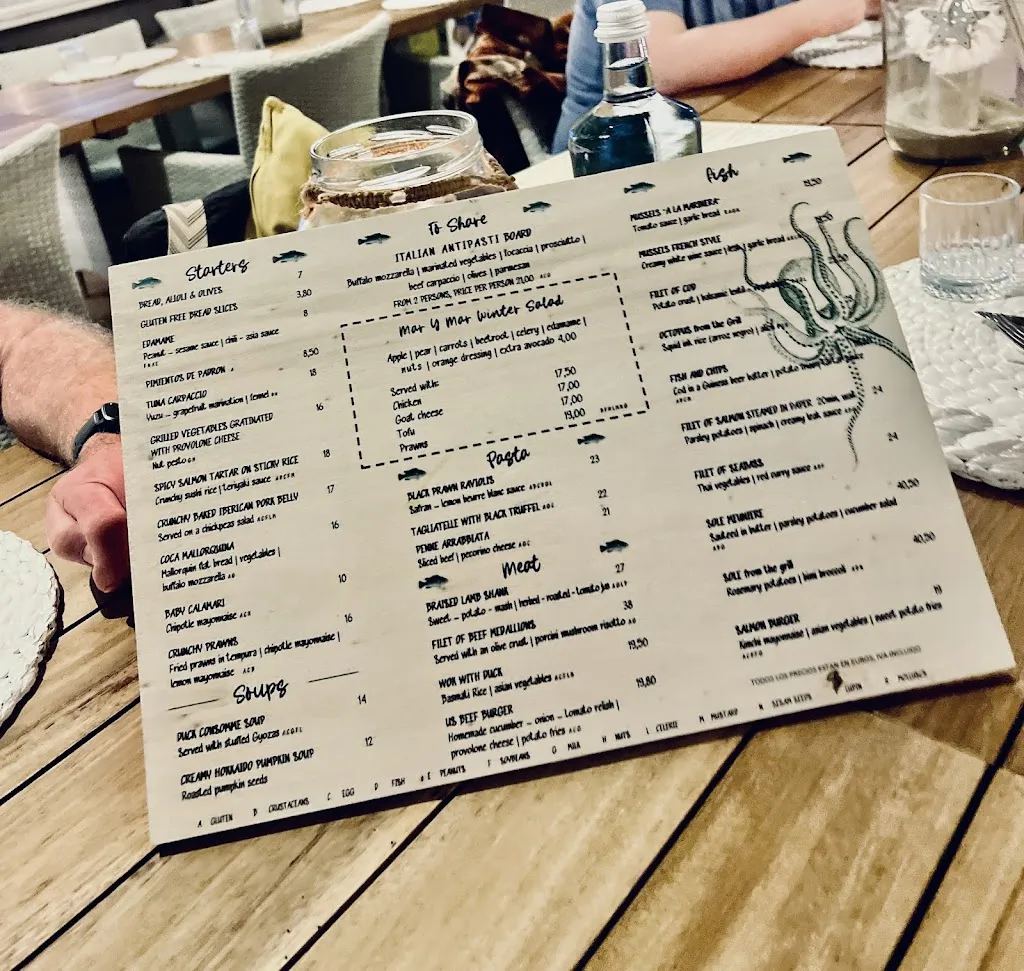 Starters
BREAD, ALIOLI & OLIVES 7
GLUTEN FREE BREAD SLICES 3,80
EDAMAME 8
Peanut - sesame sauce | chili - asia sauce
PIMIENTOS DE PADRON 8,50
TUNA CARPACCIO 18
Yuzu - grapefruit marination | fennel
GRILLED VEGETABLES GRATINATED 16
WITH PROVOLONE CHEESE
Nut pesto
SPICY SALMON TARTAR ON STICKY RICE 18
Crunchy sushi rice | teriyaki sauce
CRUNCHY BAKED IBERICAN PORK BELLY 17
Served on a chickpeas salad
COCA MALLORQUINA 16
Mallorquin flat bread | vegetables |
buffalo mozzarella
BABY CALAMARI 10
Chipotle mayonnaise
CRUNCHY PRAWNS 16
Fried prawns in tempura | chipotle mayonnaise |
lemon mayonnaise
Soups
DUCK CONSOMME SOUP 14
Served with stuffed Gyozas
CREAMY HOKKAIDO PUMPKIN SOUP 12
Roasted pumpkin seeds
To Share
ITALIAN ANTIPASTI BOARD
Buffalo mozzarella | marinated vegetables | focaccia | prosciutto |
beef carpaccio | olives | parmesan
FROM 2 PERSONS, PRICE PER PERSON 21,00
Mar Y Mar Winter Salad
Apple | pear | carrots | beetroot | celery | edamame |
nuts | orange dressing | extra avocado 4,00
Served with:
Chicken 17,50
Goat cheese 17,00
Tofu 17,00
Prawns 19,00
Pasta
BLACK PRAWN RAVIOLIS 23
Safran - lemon beurre blanc sauce
TAGLIATELLE WITH BLACK TRUFFEL 22
PENNE ARRABBIATA 21
Sliced beef | pecorino cheese
Meat
BRAISED LAMB SHANK 27
Sweet - potato - mash | herbed - roasted - tomato jus
FILET OF BEEF MEDALLIONS 38
Served with an olive crust | porcini mushroom risotto
WOK WITH DUCK 19,50
Basmati Rice | asian vegetables
US BEEF BURGER 19,80
Homemade cucumber - onion - tomato relish |
provolone cheese | potato fries
Fish
MUSSELS "A LA MARINERA" 19,50
Tomato sauce | garlic bread
MUSSELS FRENCH STYLE
Creamy white wine sauce | leek | garlic bread
FILET OF COD
Potato crust | balsamic
OCTOPUS from the Grill
Squid ink rice (arroz negro) |
FISH AND CHIPS
Cod in a Guiness beer batter | potato
FILET OF SALMON STEAMED IN PAPER 20min. 24
Parsley potatoes | spinach | creamy leek sauce
FILET OF SEABASS 24
Thai vegetables | red curry sauce
SOLE MEUNIERE 40,50
Sauteed in butter | parsley potatoes | cucumber salad
SOLE from the grill 40,50
Rosemary potatoes | bimi broccoli
SALMON BURGER 19
Kimchi mayonnaise | asian vegetables | sweet potato fries
TODOS LOS PRECIOS ESTAN EN EUROS, IVA INCLUIDO
A GLUTEN B CRUSTACEANS C EGG D FISH E PEANUTS F SOYBEANS G MILK H NUTS L CELERIE M MUSTARD N SESAM SEEDS LUPIN R MOLLUSCS